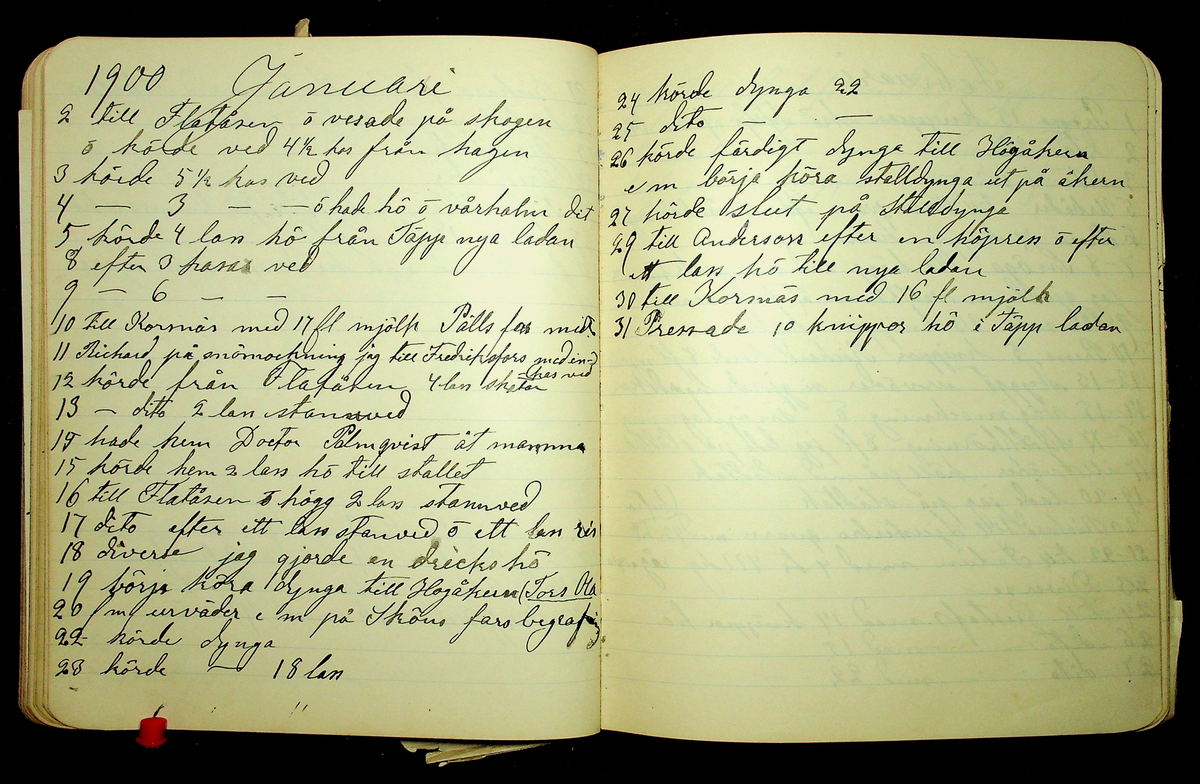 1900 Januari
2 till Flatåsen ö vesade på skogen
ö körde ved 4½ kas från hagen
3 körde 5½ kas ved
4 — 3 — — ö hade hö ö vårhalm dit
5 körde 4 lass hö från Täpp nya ladan
8 efter 3 kasar ved
9 — 6 — —
10 till Kornäs med 17 fl mjölk Pålls far med
11 Richard på snömockning jag till Fredriksfors med en
kas ved
12 körde från Flatåsen 4 lass
13 — dito 2 lass stamved
14 hade hem Doctor Palmqvist åt mamma
15 körde hem 2 lass hö till stallet
16 till Flatåsen ö högg 2 lass stamved
17 dito efter ett lass stamved ö ett lass ris
18 diverse jag gjorde en drickshö
19 börja köra dynga till Högåkern (Tors Ola
20 fm urväder e m på Sköns fars begrafng
22 körde dynga
23 körde — 18 lass
24 körde dynga 22
25 dito — —
26 körde färdigt dynga till Högåkern
e m börja köra stalldynga ut på åkern
27 körde slut på stalldynga
29 till Anderson efter en höpress ö efter
ett lass hö till nya ladan
30 till Kornäs med 16 fl mjölk
31 Pressade 10 knippor hö i Täpp ladan